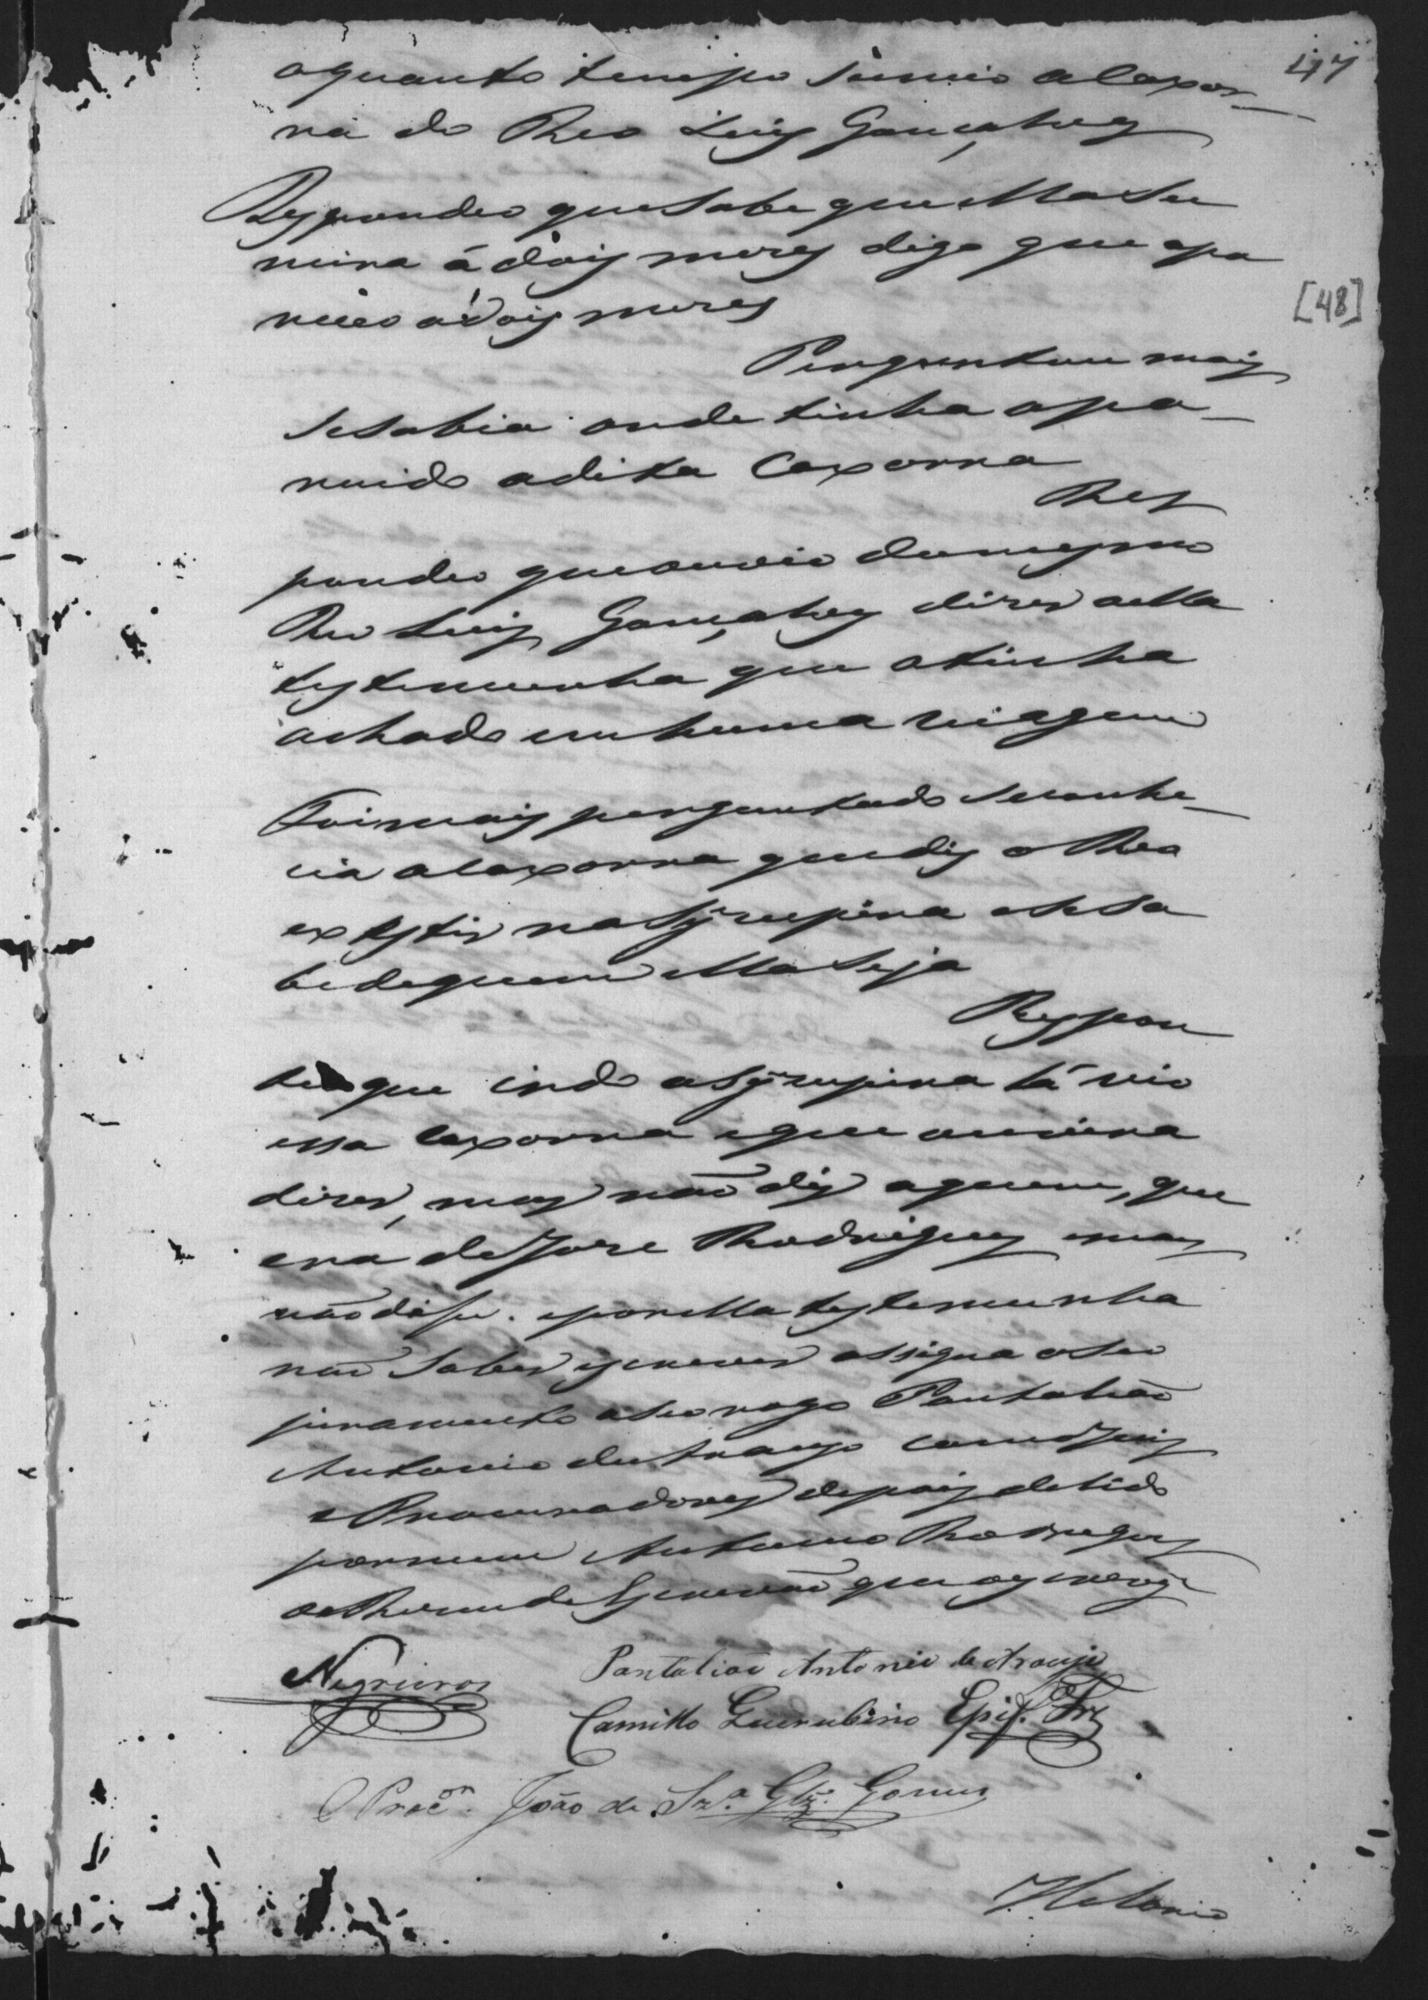 47
aquanto tempo sumio aCaxor-
ra do Reo Luis Gonçalves
Respondeo que sabe que Ella su
mira á dois meses digo que apa
receo á dois meses
[48]
Perguntou mais
Sesabia onde tinha apa-
recido adita Caxorra
Res
pondeo que ouvio do mesmo
Reo Luis Gonçalves diser aella
testemunha que atinha
achado em huma viagem
Foi mais perguntado Seconhe-
cia aCaxorra que dis o Reo
exestir na Sycupira eSesa
be de quem Ella Seja
Respon
deo que indo aSycupira lá vio
essa Caxorra eque ouvira
diser, mas não dis aquem, que
era de Jose Rodrigues emais
não disse. epor ella testemunha
não Saber escrever assigna oseo
juramento aseo rogo Pantalião
Antonio de Araujo com oJuis
e Procuradores depois de lido
por mim Antonio Rodrigues
de Escrivão que o escrevy
Negreiros
Pantalião Antonio de Araujo
Camillo Querubino Epif. Frz
O Procor. João de Sza. Glz. Gomes